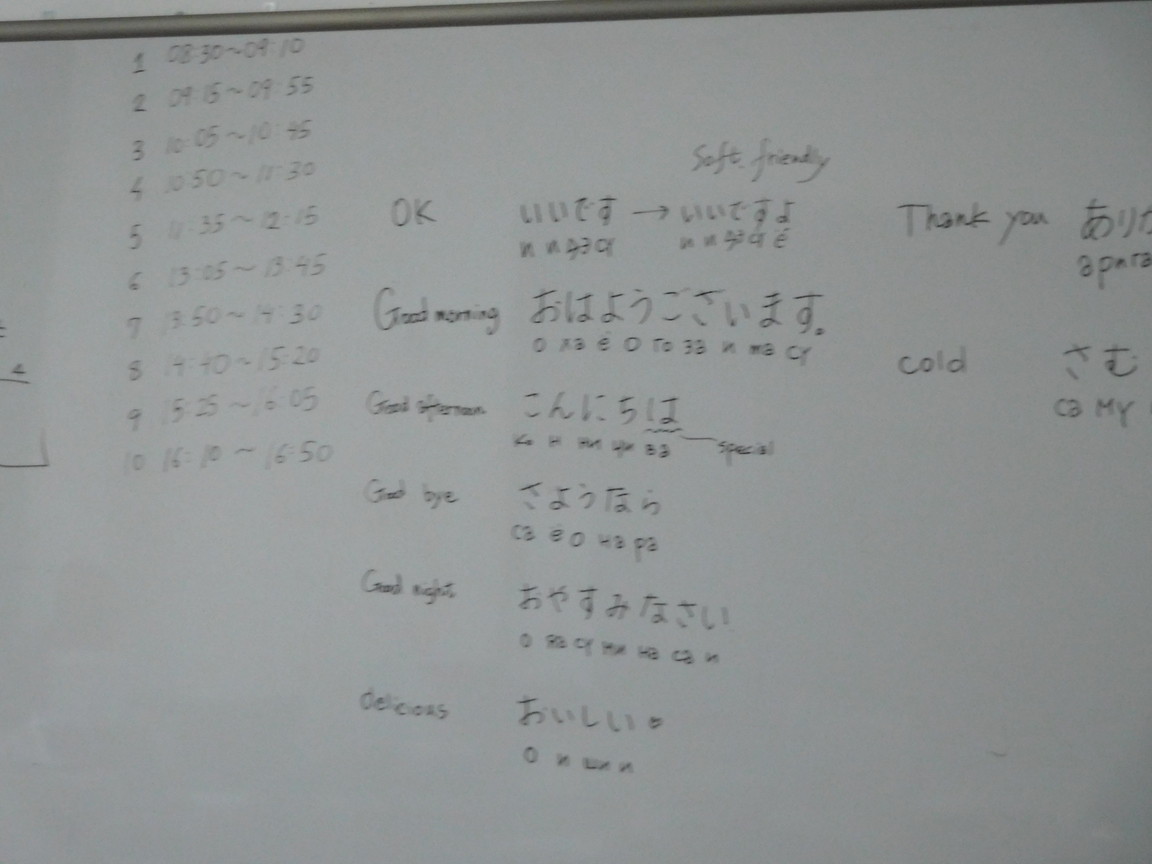 1 08:30~09:10
2 09:15~09:55
3 10:05~10:45
4 10:50~11:30
5 11:35~12:15
6 13:05~13:45
7 13:50~14:30
8 14:40~15:20
9 15:25~16:05
10 16:10~16:50
Soft. friendly
OK いいです → いいですよ
и и дэ су и и дэ су ё
Good morning おはようございます。
о ха ё о го за и ма су
Good afternoon こんにちは
ко н ни чи ва special
Good bye さようなら
са ё о на ра
Good night おやすみなさい
о яа су ми на са и
delicious おいしい
о и ши и
Thank you あり
а ри га
cold さむ
са му